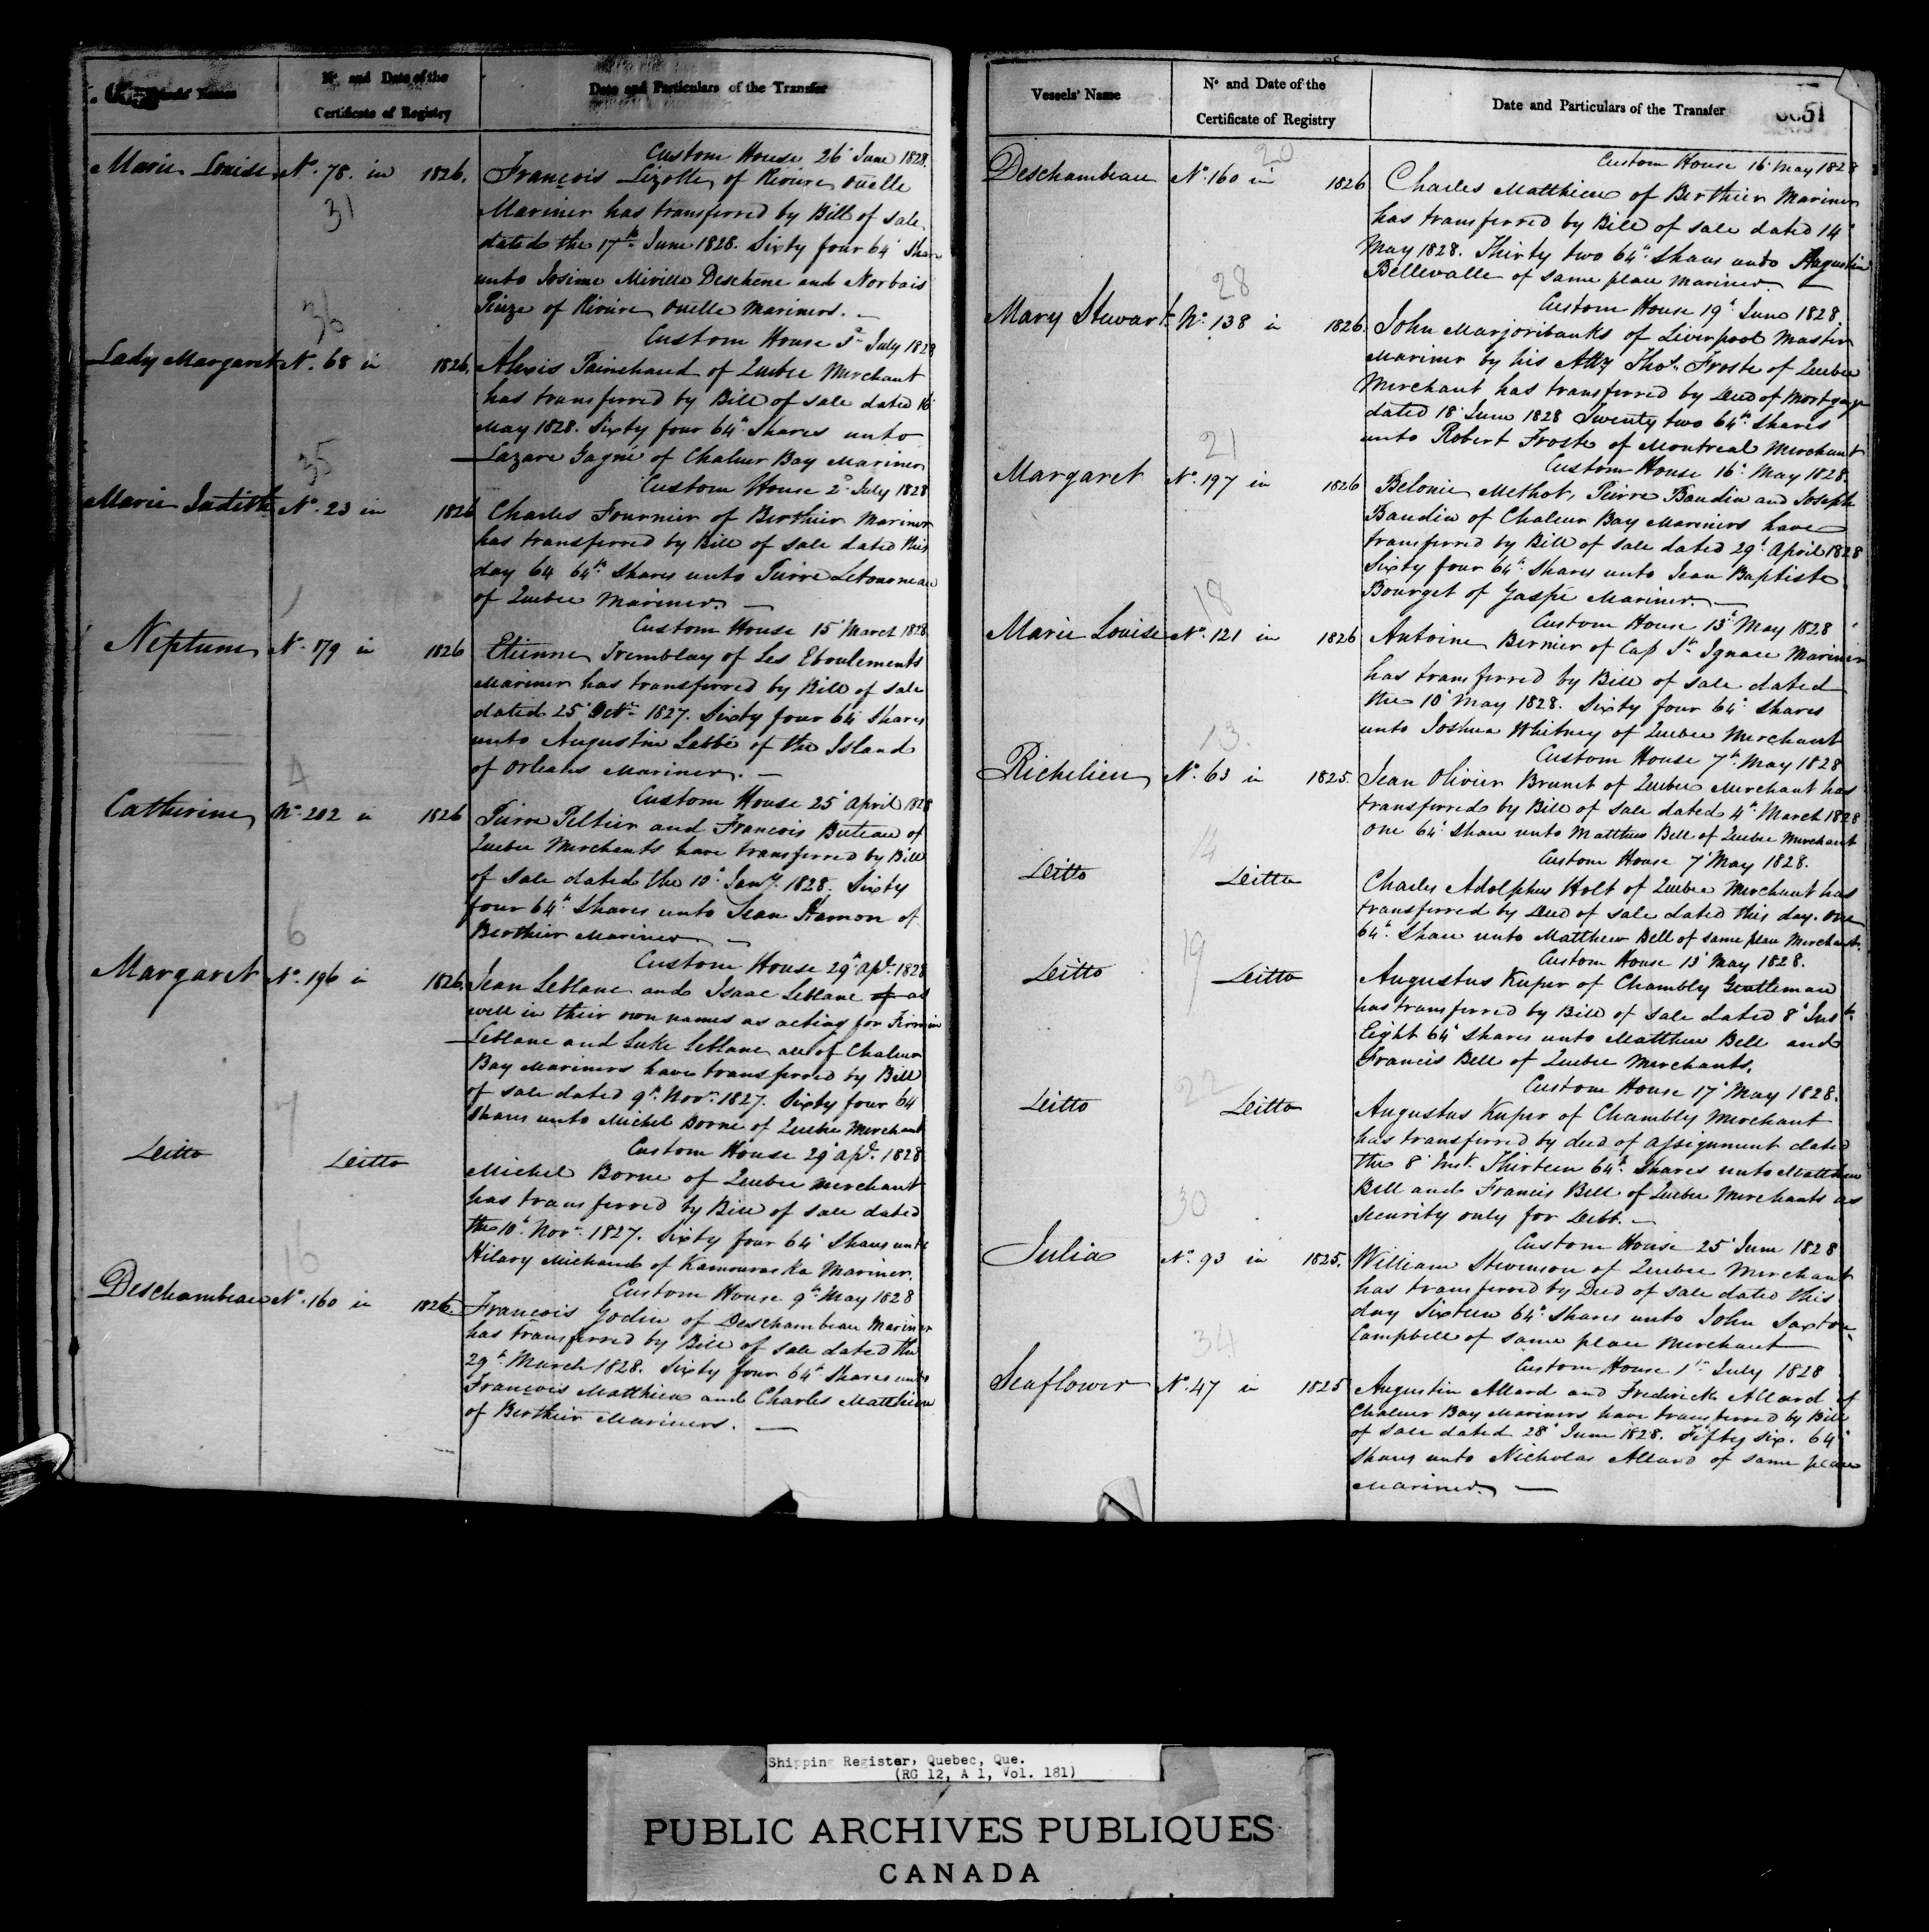 Vessels' Names
No. and Date of the
Certificate of Registry
Date and Particulars of the Transfer
Custom House 26 June 1828.
Marie Louise No. 78. in 1826. François Lizotte of Riviere Ouelle
31
Mariner has transferred by Bill of sale
dated the 17th June 1828. Sixty four 64 Shares
unto Josime Miville Deschene and Norbais
Pieze of Riviere Ouelle Mariners. —
36
Custom House 3d July 1828
Lady Margaret No. 68 in 1826. Alexis Painchaud of Quebec Merchant
has transferred by Bill of sale dated 16
May 1828. Sixty four 64th Shares unto
Lazare Gagné of Chaleur Bay Mariner
35
Custom House 2d July 1828
Marie Judith No. 23 in 1826 Charles Fournier of Berthier Mariner
has transferred by Bill of sale dated this
day 64 64th Shares unto Pierre Letourneau
of Quebec Mariner. —
1
Custom House 15 March 1828.
Neptune No. 179 in 1826 Etienne Tremblay of Les Eboulements
Mariner has transferred by Bill of sale
dated 25 Octr. 1827. Sixty four 64 Shares
unto Augustin Labbé of the Island
of Orleans Mariner. —
4
Custom House 25 April 1828
Catherine No. 202 in 1826 Pierre Peltier and Francois Buteau of
Quebec Merchants have transferred by Bill
of sale dated the 10th Jany. 1828. Sixty
four 64th Shares unto Jean Hamon of
Berthier Mariner —
6
Custom House 29th Apl. 1828
Margaret No. 196 in 1826. Jean Leblanc and Isaac Leblanc as
well in their own names as acting for Firmin
Leblanc and Luke Leblanc all of Chaleur
Bay Mariners have transferred by Bill
of sale dated 9th Novr. 1827. Sixty four 64
Shares unto Michel Borne of Quebec Merchant
7
Custom House 29 Apl. 1828
Ditto Ditto Michel Borne of Quebec Merchant
has transferred by Bill of sale dated
the 10th Novr. 1827. Sixty four 64 Shares unto
Hilary Michaud of Kamouraska Mariner.
16
Custom House 9th May 1828
Deschambeau No. 160 in 1826. François Godin of Deschambeau Mariner
has transferred by Bill of sale dated the
29th March 1828. Sixty four 64th Shares unto
François Matthieu and Charles Matthieu
of Berthier Mariners. —
Vessels' Name
No and Date of the
Certificate of Registry
Date and Particulars of the Transfer
51
20
Custom House 16 May 1828
Deschambeau No. 160 in 1826 Charles Matthieu of Berthier Mariner
has transferred by Bill of sale dated 14
May 1828. Thirty two 64th Shares unto Augustin
Bellevalle of same place Mariner —
28
Custom House 19th June 1828.
Mary Stewart No. 138 in 1826. John Marjoribanks of Liverpool Master
Mariner by his Atty Thos. Froste of Quebec
Merchant has transferred by Deed of Mortgage
dated 18 June 1828 Twenty two 64th Shares
unto Robert Froste of Montreal Merchant
21
Custom House 16th May 1828.
Margaret No. 197 in 1826 Belonie Methot, Pierre Baudin and Joseph
Baudin of Chaleur Bay Mariners have
transferred by Bill of sale dated 29th April 1828
Sixty four 64th Shares unto Jean Baptiste
Bourget of Gaspe Mariner. —
18
Custom House 13 May 1828
Marie Louise No. 121 in 1826 Antoine Bernier of Cap St. Ignace Mariner
has transferred by Bill of sale dated
the 10 May 1828. Sixty four 64 Shares
unto Joshua Whitney of Quebec Merchant
13.
Custom House 7th May 1828
Richelieu No. 63 in 1825. Jean Olivier Brunet of Quebec Merchant has
transferred by Bill of sale dated 4th March 1828
one 64 Share unto Matthew Bell of Quebec Merchant
14
Custom House 7 May 1828.
Ditto Ditto Charles Adolphus Holt of Quebec Merchant has
transferred by Deed of sale dated this day. one
64th Share unto Matthew Bell of same place Merchant.
19
Custom House 13 May 1828.
Ditto Ditto Augustus Kuper of Chambly Gentleman
has transferred by Bill of sale dated 8 Inst.
Eight 64 Shares unto Matthew Bell and
Francis Bell of Quebec Merchants.
22
Custom House 17 May 1828.
Ditto Ditto Augustus Kuper of Chambly Merchant
has transferred by deed of assignment dated
the 8 Inst. Thirteen 64th Shares unto Matthew
Bell and Francis Bell of Quebec Merchants as
security only for Debt. —
30
Custom House 25 June 1828
Julia No. 93 in 1825. William Stevenson of Quebec Merchant
has transferred by Deed of sale dated this
day Sixteen 64th Shares unto John Saxton
Campbell of same place Merchant
34
Custom House 1st July 1828
Seaflower No. 47 in 1825 Augustin Allard and Frederick Allard of
Chaleur Bay Mariners have transferred by Bill
of sale dated 28 June 1828. Fifty six. 64
Shares unto Nicholas Allard of same place
Mariner. —
Shipping Register, Quebec, Que.
(RG 12, A 1, Vol. 181)
PUBLIC ARCHIVES PUBLIQUES
CANADA